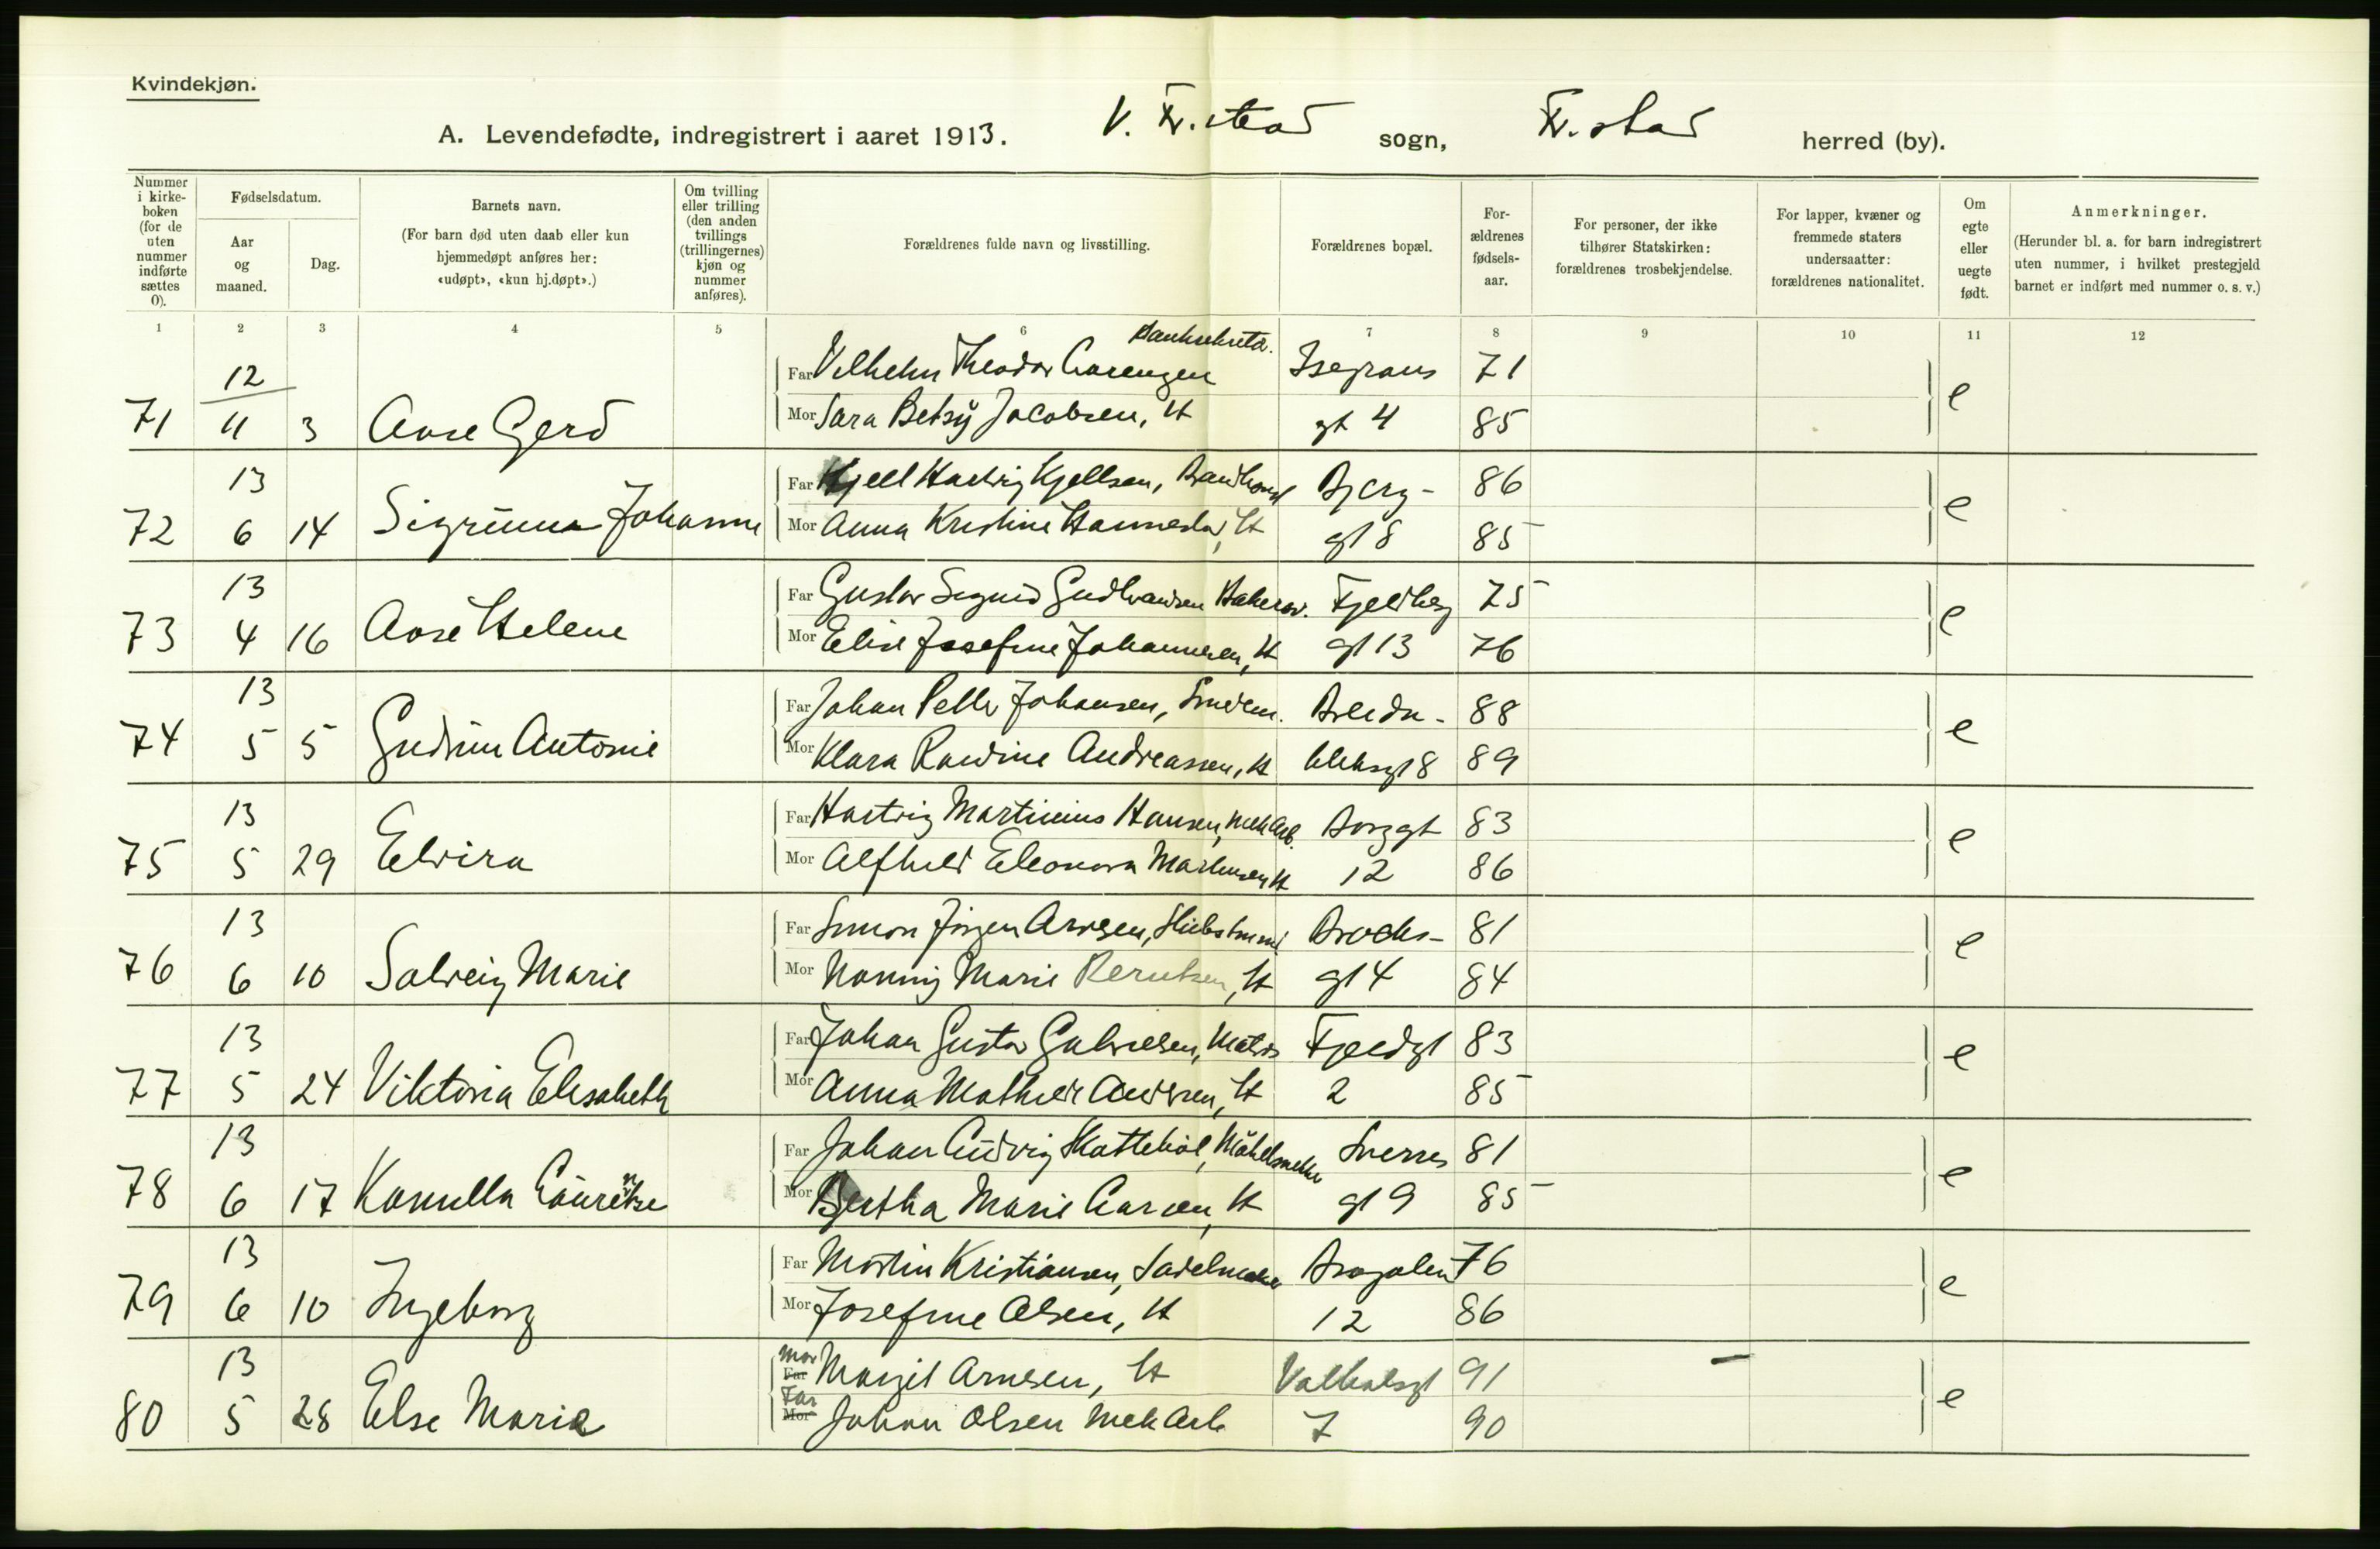 Kvindekjøn.
A. Levendefødte, indregistrert i aaret 1913. V. Fr.stad sogn, Fr.stad herred (by).
Nummer i kirkeboken (for de uten nummer indførte sættes 0).
Fødselsdatum.
Aar og maaned.
Dag.
Barnets navn.
(For barn død uten daab eller kun hjemmedøpt anføres her: «udøpt», «kun hj.døpt».)
Om tvilling eller trilling (den anden tvillings (trillingernes) kjøn og nummer anføres).
Forældrenes fulde navn og livsstilling.
Forældrenes bopæl.
For-ældrenes fødsels-aar.
For personer, der ikke tilhører Statskirken: forældrenes trosbekjendelse.
For lapper, kvæner og fremmede staters undersaatter: forældrenes nationalitet.
Om egte eller uegte født.
Anmerkninger.
(Herunder bl. a. for barn indregistrert uten nummer, i hvilket prestegjeld barnet er indført med nummer o. s. v.)
1 2 3 4 5 6 7 8 9 10 11 12
12 Far Vilhelm Theodor Larensen 71
71 11 3 Aase Gerd Mor Sara Betsy Jacobsen, H gt 4 85 e
13 Far Kjell Hartvig Kjellsen, Bjerg- 86
72 6 14 Sigrunn Johanne Mor Anna Kristine H gt 8 85 e
13 Far Gustav Sigurd Gudbrandsen Fjeldberg 75
73 4 16 Aase Helene Mor Elise Josefine Johannesen, H gt 13 76 e
13 Far Johan Petter Johansen, 88
74 5 5 Gudrun Antonie Mor Klara Andreassen, H 8 89 e
13 Far Hartvig Martinius Hansen, Mek Arb. Borggt 83
75 5 29 Elvira Mor Alfhild Eleonora H 12 86 e
13 Far Simon Jørgen Arvesen, Skibstømm Brochs- 81
76 6 10 Solveig Marie Mor Nanny Marie Berntsen, H gt 4 84 e
13 Far Johan Gustav Gabrielsen, Matros Fjeldgt 83
77 5 24 Viktoria Elisabeth Mor Anna Mathilde Andersen, H 2 85 e
13 Far Johan Ludvig Møbelsnekker Sverres 81
78 6 17 Kamilla Laurentse Mor Bertha Marie Larsen, H gt 9 85 e
13 Far Martin Kristiansen, Sadelmaker 76
79 6 10 Ingeborg Mor Josefine Olsen, H 12 86 e
13 Mor Far Margit Arnesen, H Valhalsgt 91
80 5 28 Else Marie Far Mor Johan Olsen Mek Arb 7 90 e